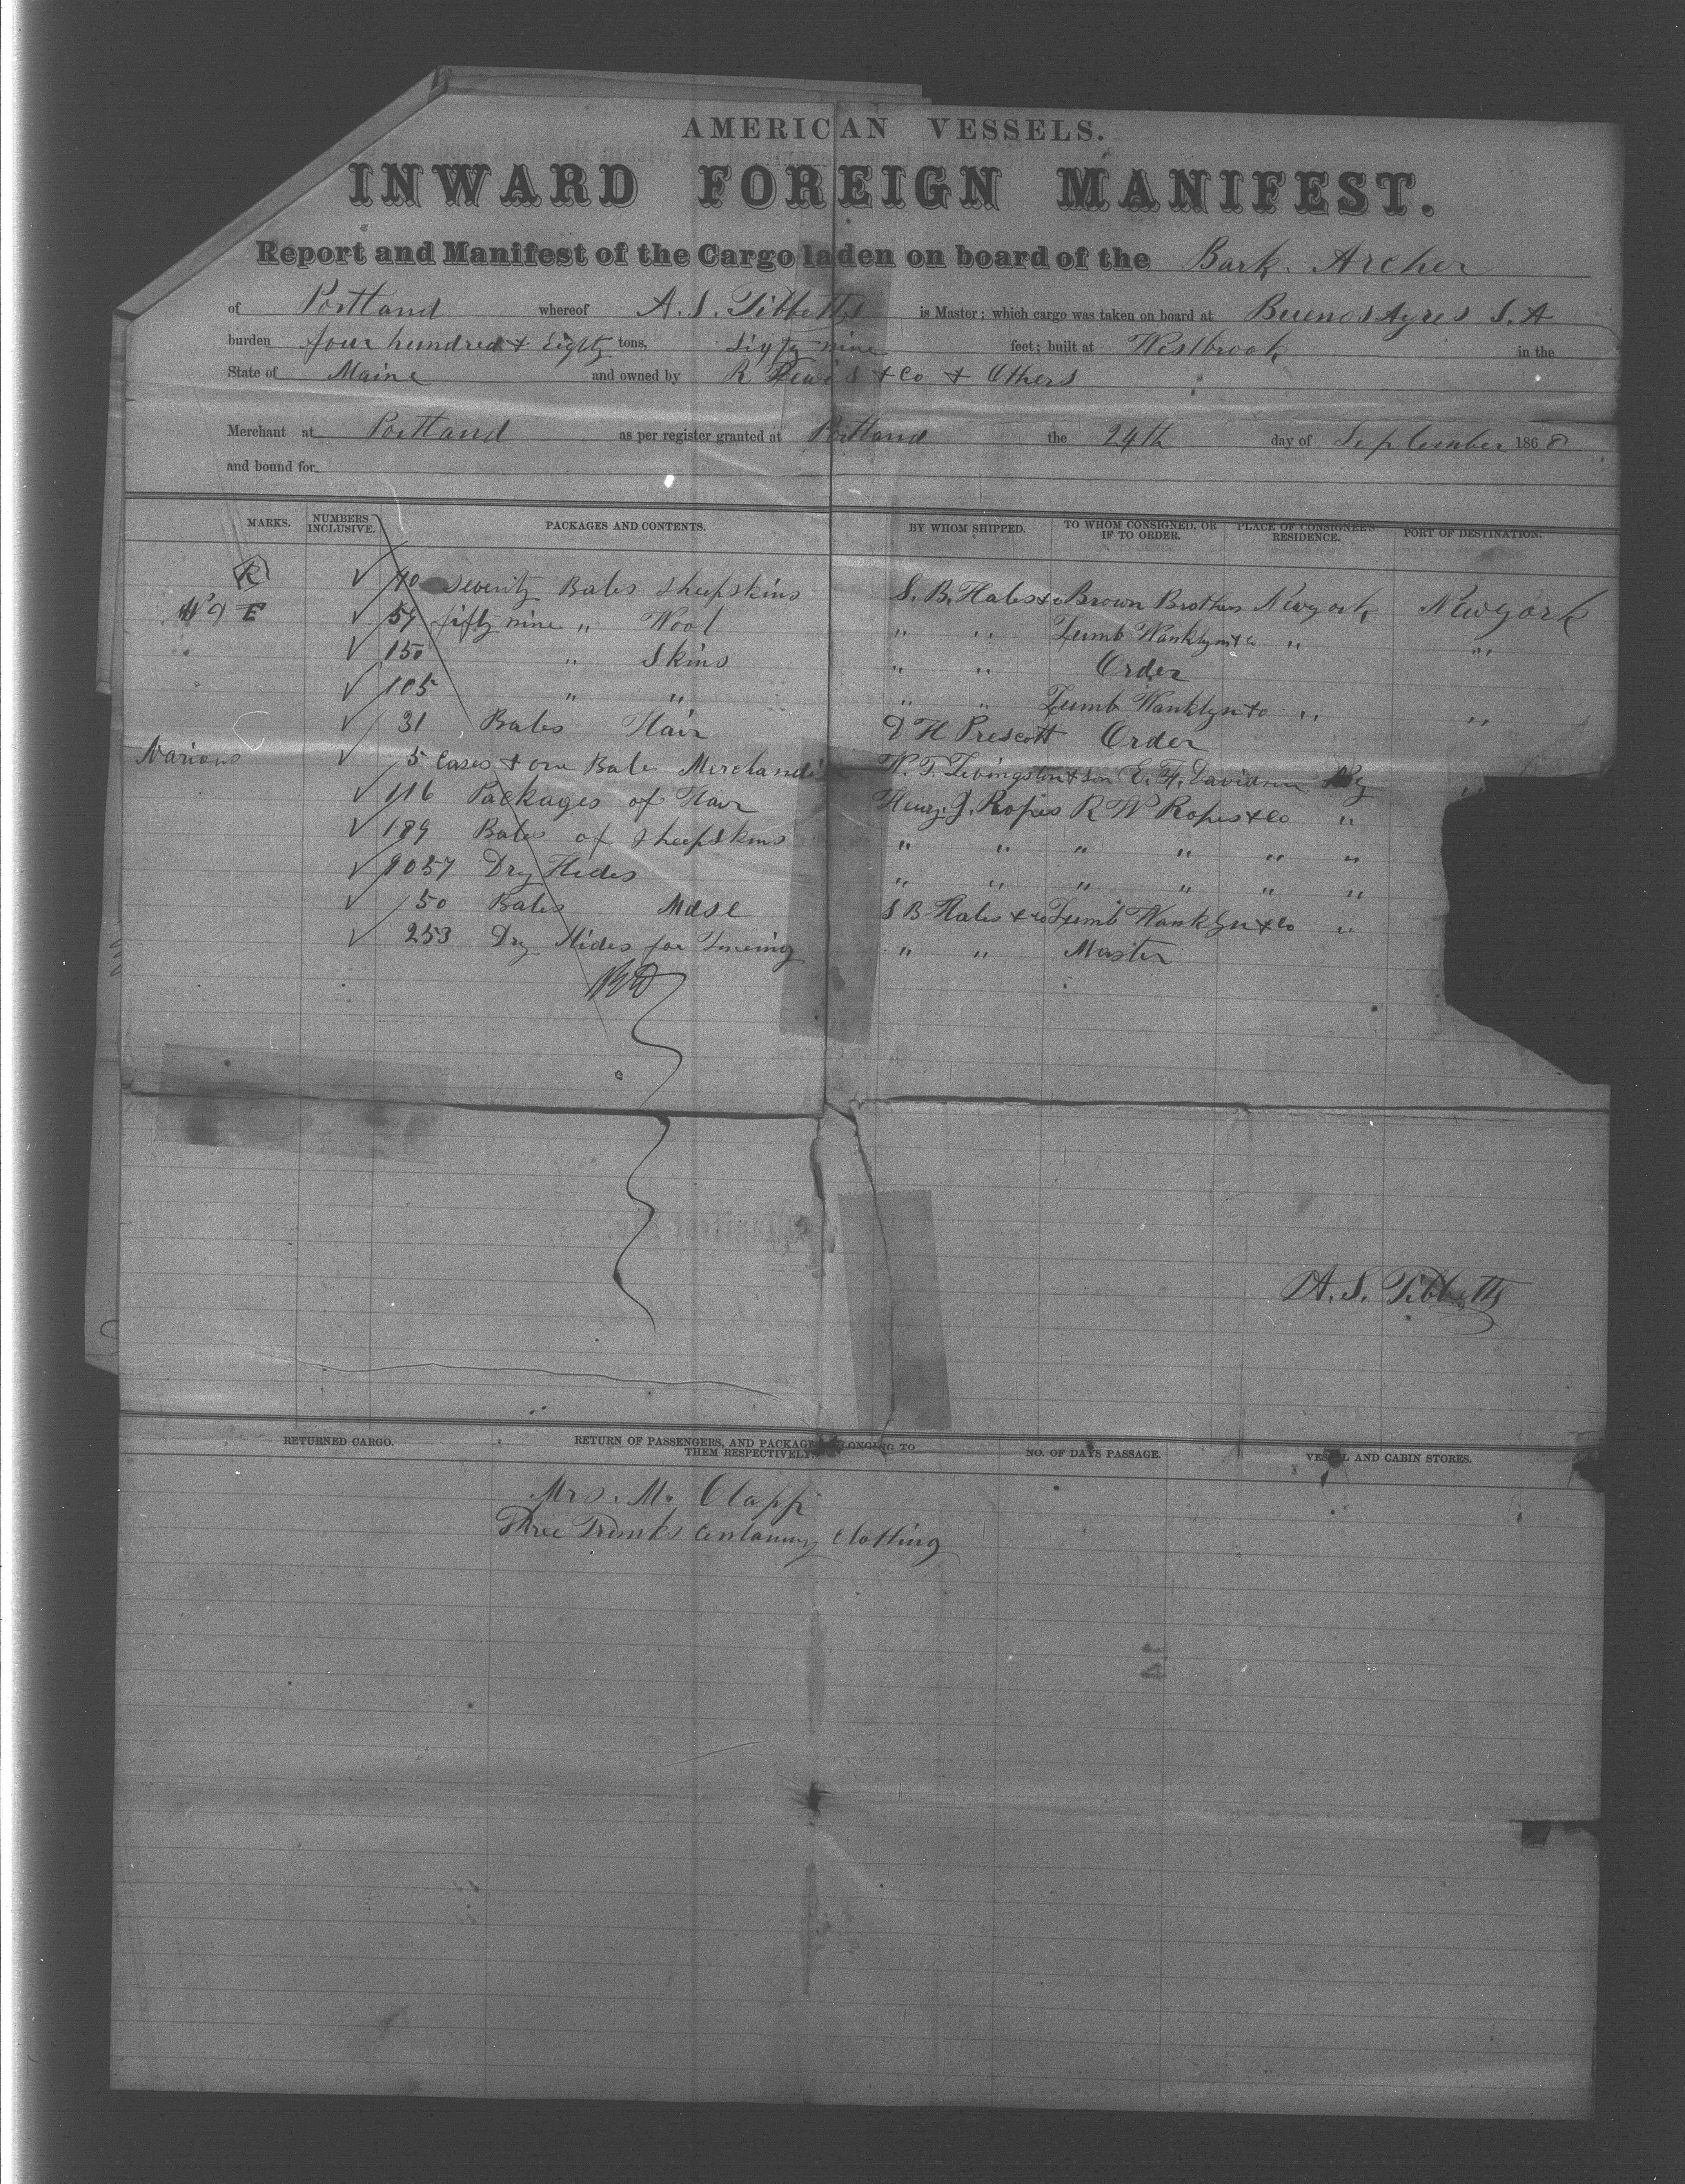 AMERICAN VESSELS.
INWARD FOREIGN MANIFEST.
Report and Manifest of the Cargo laden on board of the Bark Archer
of Portland whereof A. S. Tibbetts is Master; which cargo was taken on board at Buenos Ayres S. A
burden four hundred & Eighty tons, Sixty nine feet; built at Westbrook in the
State of Maine and owned by R Lewis & Co & Others
Merchant at Portland as per register granted at Portland the 24th day of September 1868
and bound for
MARKS. NUMBERS INCLUSIVE. PACKAGES AND CONTENTS. BY WHOM SHIPPED. TO WHOM CONSIGNED, OR IF TO ORDER. PLACE OF CONSIGNEE'S RESIDENCE. PORT OF DESTINATION.
R ✓ 70 Seventy Bales Sheepskins S. B. Hales & Co Brown Brothers Newyork Newyork
✓ 59 fifty nine " Wool " " Zumb Wanklyn & Co " "
✓ 150 " Skins " " Order
✓ 105 " " " " Zumb Wanklyn & Co " "
✓ 31 Bales Hair D H Prescott Order
Various ✓ 5 Cases & one Bale Merchandise W. T. Livingston & Son E. F. Davison NY "
✓ 116 Packages of Hair Henry J. Ropes R W Ropes & Co "
✓ 189 Bales of Sheepskins " " " " " "
✓ 9057 Dry Hides " " " " " "
✓ 50 Bales Mdse S B Hales & Co Zumb Wanklyn & Co "
✓ 253 Dry Hides for " " Master
A. S. Tibbetts
RETURNED CARGO. RETURN OF PASSENGERS, AND PACKAGES BELONGING TO THEM RESPECTIVELY. NO. OF DAYS PASSAGE. VESSEL AND CABIN STORES.
Mrs. M. Clapp
Three Trunks Containing Clothing